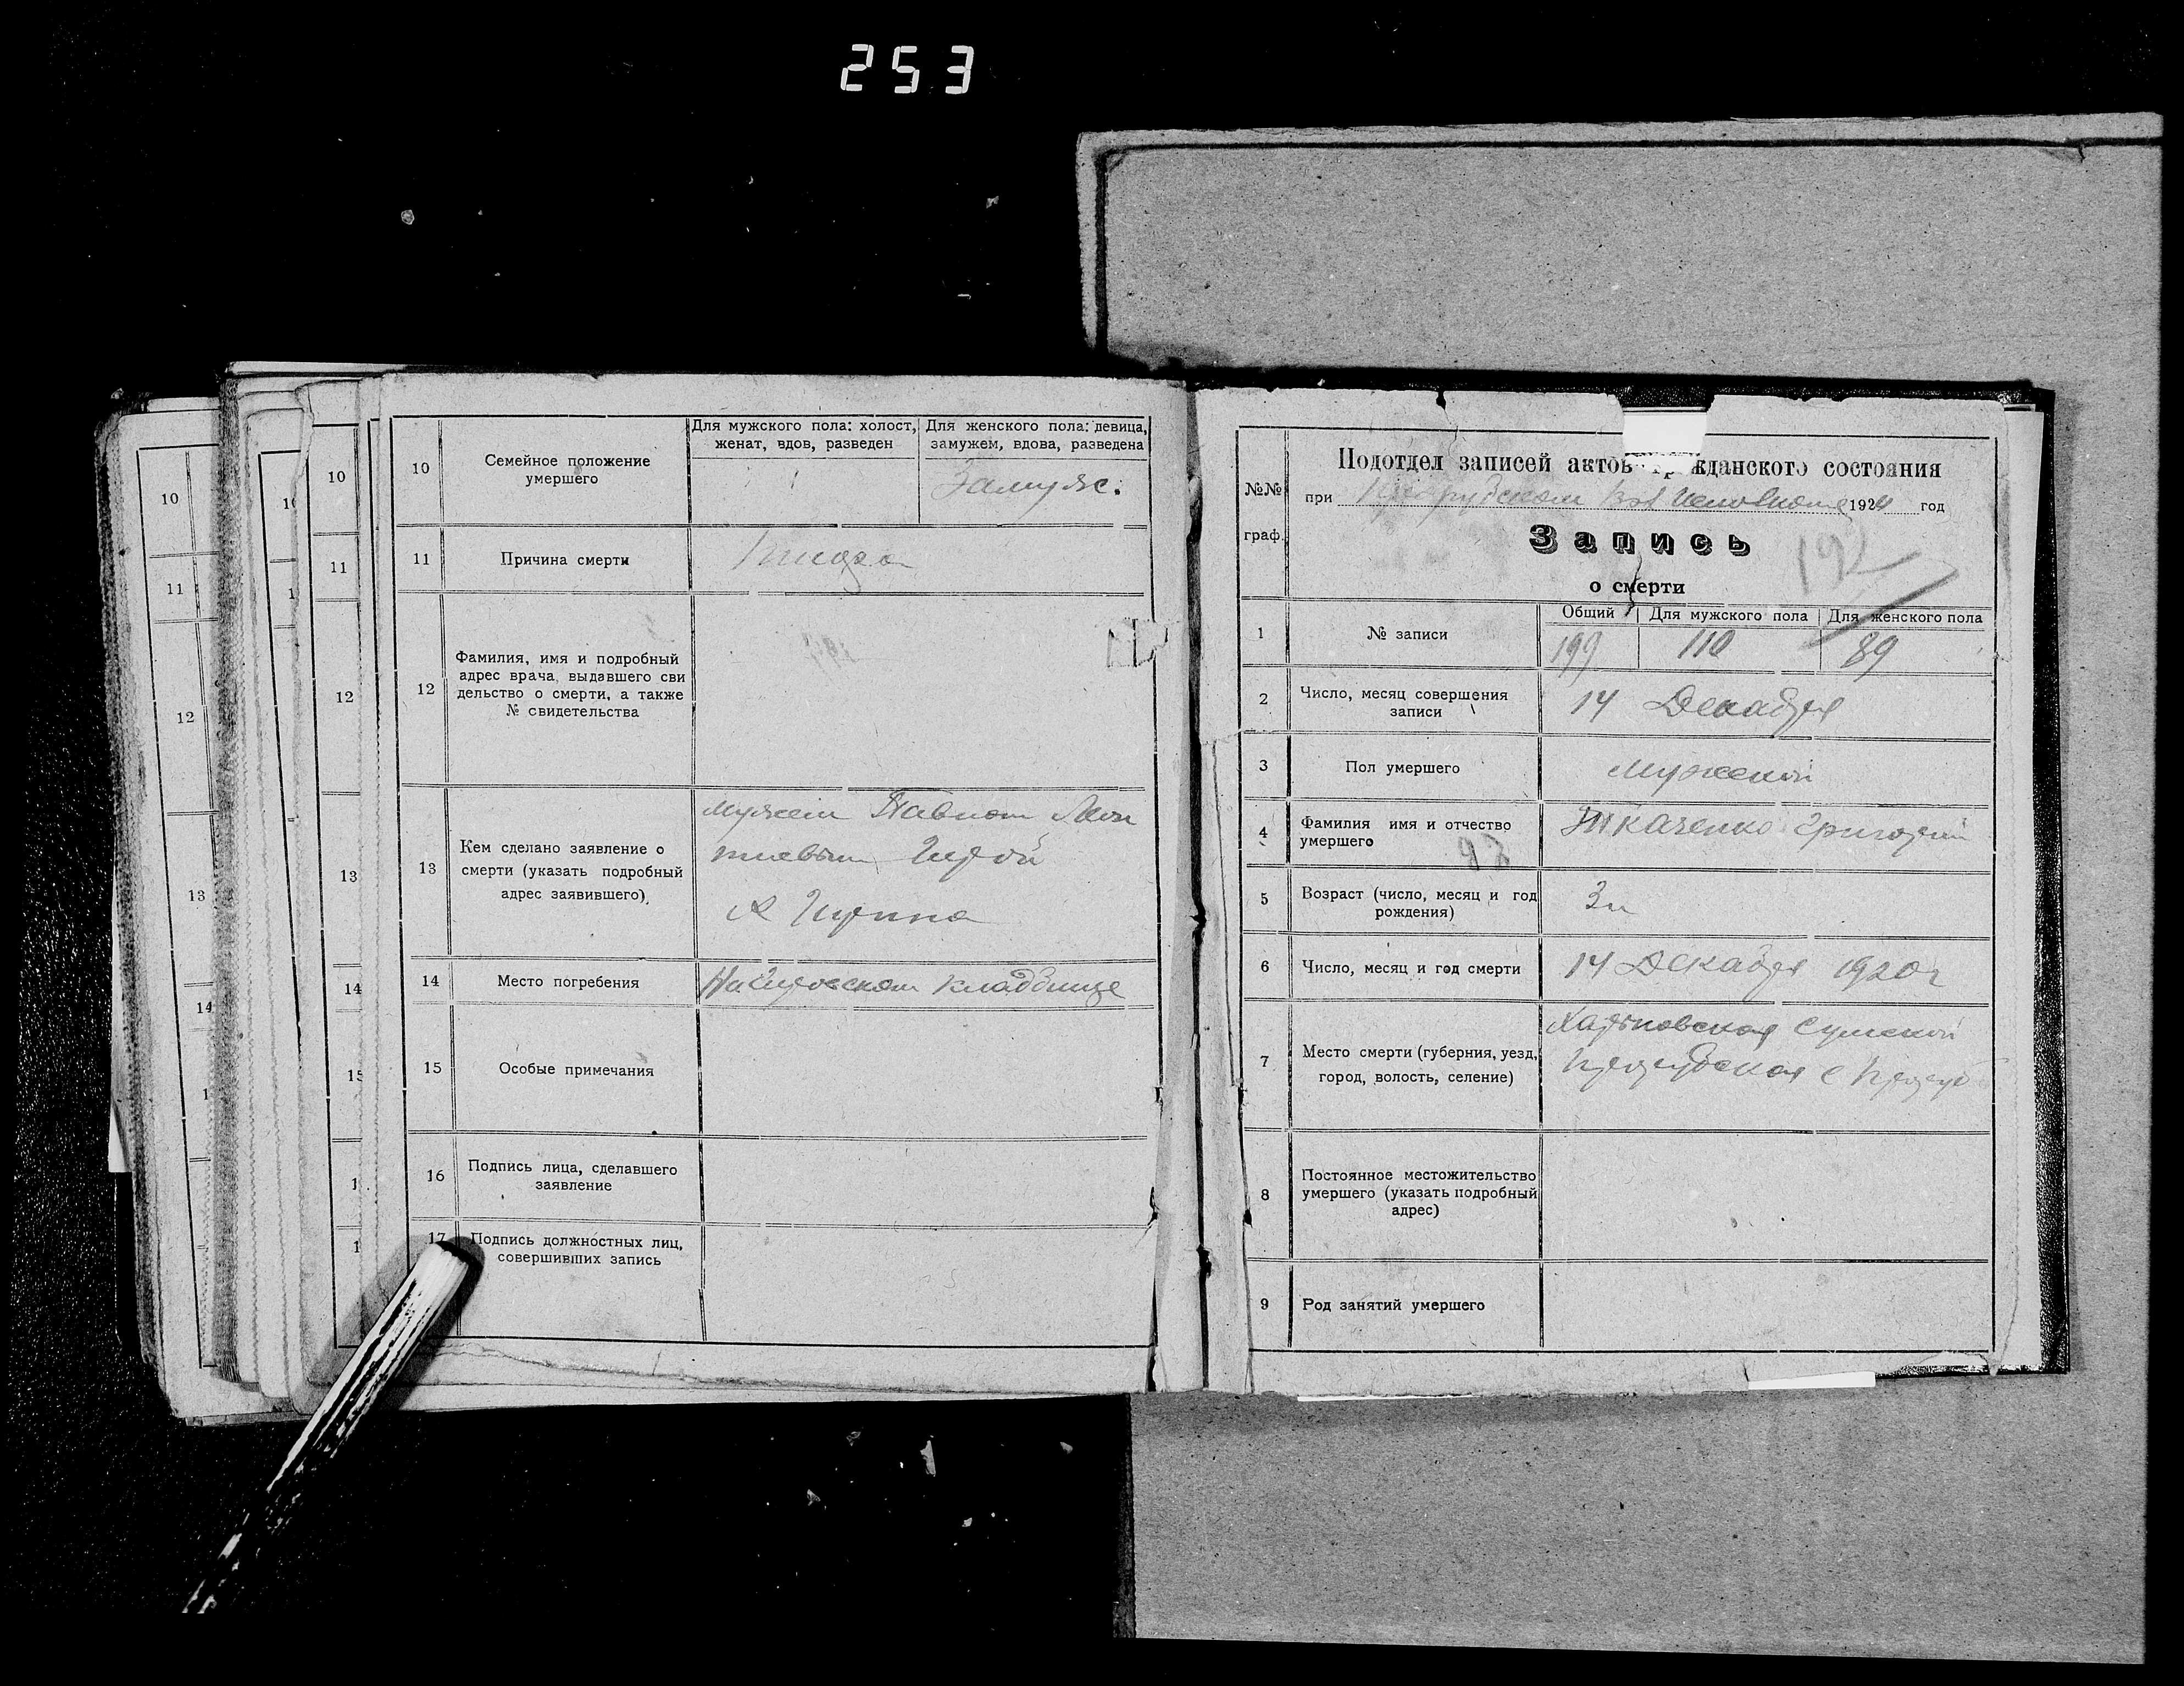 253
10
11
12
13
14
10
11
12
13
14
15
10
Семейное положение
умершего
Для мужского пола: холост,
женат, вдов, разведен
Для женского пола: девица,
замужем, вдова, разведена
Замуж.
11
Причина смерти
12
Фамилия, имя и подробный
адрес врача, выдавшего сви
детельство о смерти, а также
№ свидетельства
13
Кем сделано заявление о
смерти (указать подробный
адрес заявившего)
мужем Павлом
14
Место погребения
кладбище
15
Особые примечания
16
Подпись лица, сделавшего
заявление
17
Подпись должностных лиц,
совершивших запись
Подотдел записей актов гражданского состояния
№№
граф.
при Исполкоме 1924 год
Запись
192
о смерти
1
№ записи
Общий
Для мужского пола
Для женского пола
199
110
89
2
Число, месяц совершения
записи
14 Декабря
3
Пол умершего
Мужской
4
Фамилия имя и отчество
умершего
Ткаченко Григорий
5
Возраст (число, месяц и год
рождения)
6
Число, месяц и год смерти
14 Декабря 1920 г
7
Место смерти (губерния, уезд,
город, волость, селение)
Харьковская Сумской
8
Постоянное местожительство
умершего (указать подробный
адрес)
9
Род занятий умершего